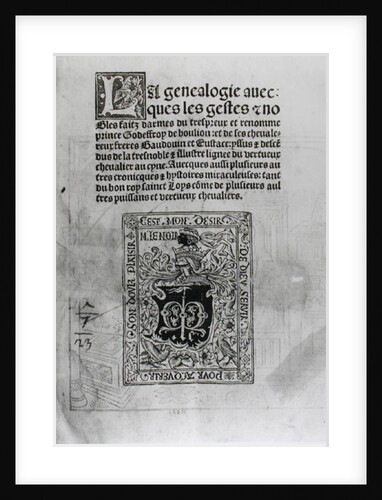 LA genealogie auec-
ques les gestes ⁊ no
bles faitz darmes du tresp̄eux et renomme
prince Godeffroy de boulion: et de ses cheuale-
reux freres Baudouin et Eustace: yssus ⁊ descē
dus de la tresnoble ⁊ illustre lignee du vertueux
cheualier au cyne. Auecques aussi plusieurs au
tres cronicques ⁊ hystoires miraculeuses: tant
du bon roy sainct Loys cōme de plusieurs aul
tres puissans et vertueux cheualiers.
CEST. MON. DESIR
DE DIEV SERVIR
POVR ACQVERIR
SON DOVLX PLAISIR
M. LE NOIR
23